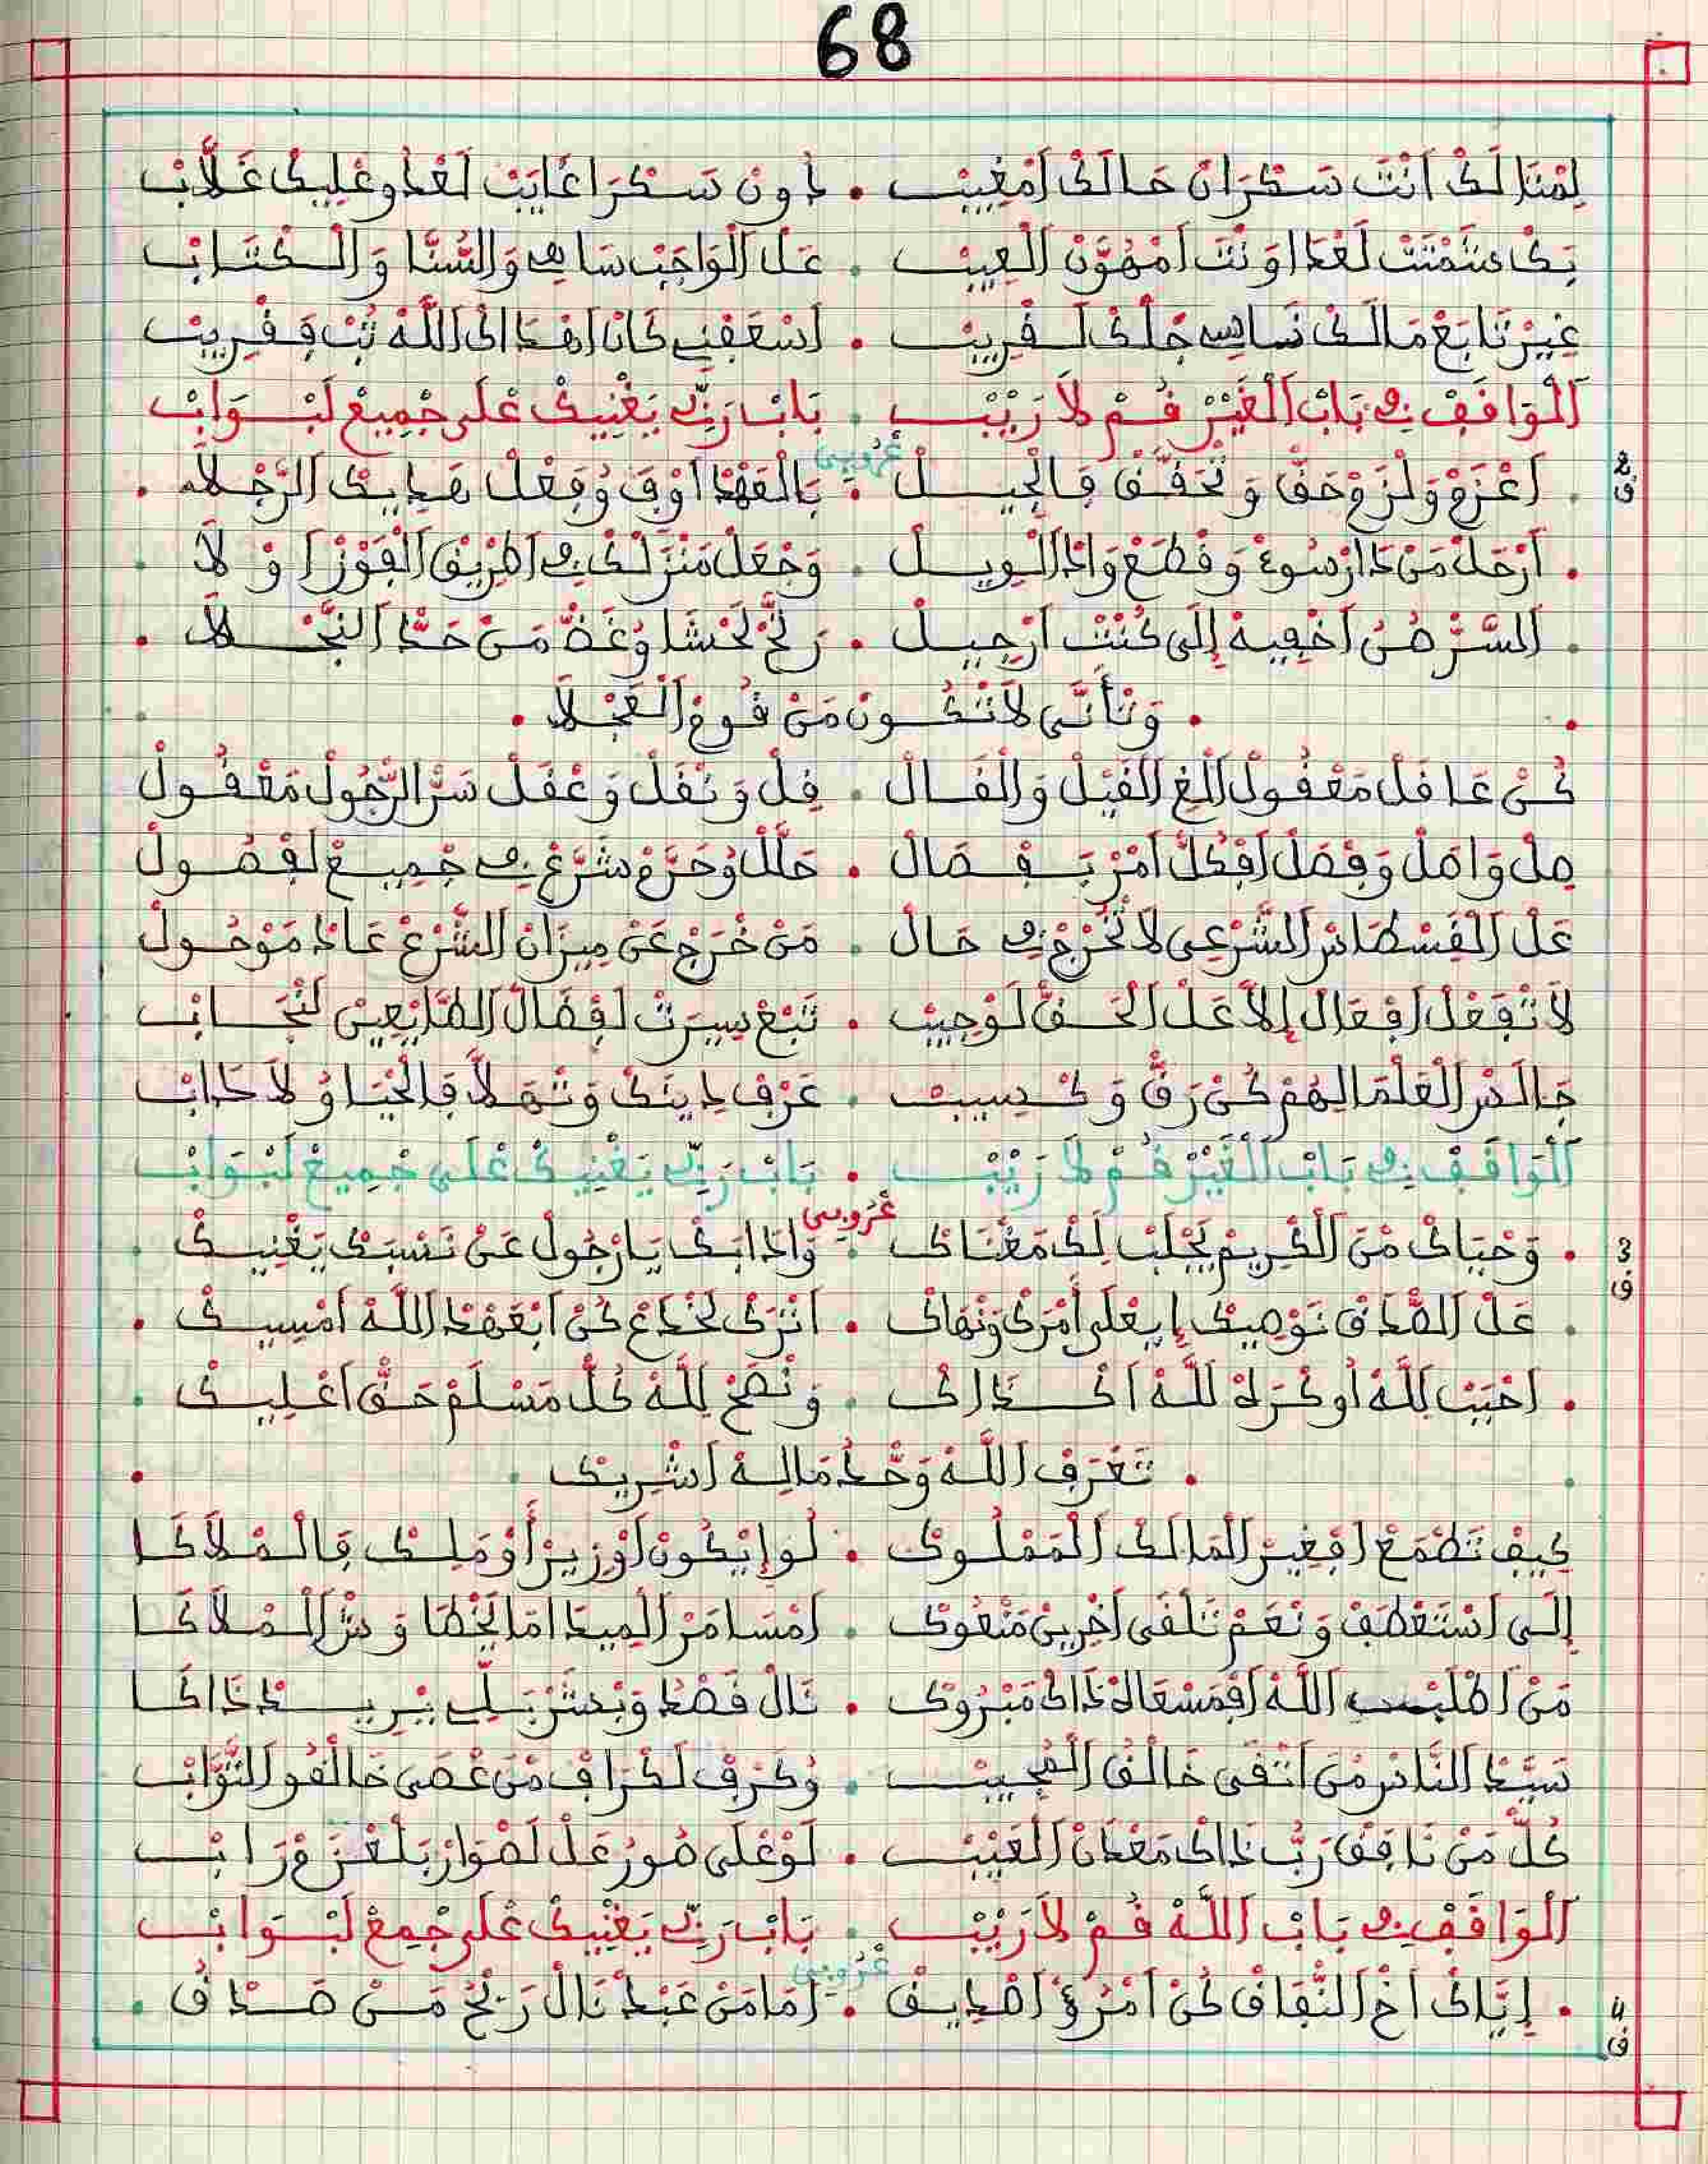 68
لِمْتَا لَكْ اَنْتَ سَكْرَانْ حَالَكْ اَمْغِيِبْ . دُونْ سَكْرَا غَايَبْ لَعْدُو عْلِيكْ غَلَّابْ
بَكْ شَمْتَتْ لَعْدَا وَنْتَ اَمْهَوَّنْ الْعِيبْ . عَلْ الْوَاجَبْ سَاهِي وَالسُّنَّا وَالْكْتَابْ
غِيرْ تَابَعْ مَالَكْ نَاسِي جْلَكْ لَقْرِيبْ . اَسْعَفْنِي كَانْ اَهْدَاكْ اللَّهْ تُبْ وَقْرِيبْ
اَلْوَاقَفْ فِي بَابْ الْغَيْرْ قُمْ لَا رَيْبْ . بَابْ رَبِّي يَغْنِيكْ عْلَى جْمِيعْ لَبْوَابْ
عْرُوبِي
2 ق
. اَعْزَمْ وَلْزَمْ حَقّْ وَتْحَقَّقْ فَالْجِيلْ . بَالْعَهْدْ اَوْفِ وُفَعْلْ هَدِيكْ الرَّجْلَا .
. اَرْحَلْ مَنْ دَارْ سُوءْ وَقْطَعْ وَادْ الْوِيلْ . وَجْعَلْ مَنْزَلَكْ فِي اطْرِيقْ الْفَوْزْ اوْلَا .
. اَلسَّرّْ صُنْ اَخْفِيهْ إِلَى كُنْتْ اَرْجِيلْ . رَخّْ لَحْشَا وُغَضّْ مَنْ حَدّْ النَّجْلَا .
. وَتْأَنَّى لَا تْكُونْ مَنْ قُومْ الْعَجْلَا .
كُنْ عَاقَلْ مَعْقُولْ اَلْغِ الْقَيْلْ وَالْقَالْ . قِلْ وَنْقَلْ وَعْقَلْ سَرّْ الرّْجُولْ مَعْقُولْ
صِلْ وَاصَلْ وَفْصَلْ اَفْكُلّْ اَمْرْ بَفْصَالْ . حَلَّلْ وُحَرَّمْ شَرَّعْ فِي جْمِيعْ لَفْصُولْ
عَلْ الْقَسْطَاسْ الشَّرْعِي لَا تْخْرُجْ فِي حَالْ . مَنْ خْرَجْ عَنْ مِيزَانْ الشَّرْعْ عَادْ مَوْحُولْ
لَا تْفَعْلْ اَفْعَالْ إِلاَّ عَلْ الْحَقّْ لَوْجِيبْ . تَبَعْ سِيرَتْ لَفْضَالْ الطَّايْعِينْ لَنْجَابْ
جَالَسْ الْعُلْمَا لِيهُمْ كُنْ رَقّْ وَكْسِيبْ . عَرْفْ دِينَكْ وَتْمَلَّا فَالْحْيَا وُلَادَابْ
اَلْوَاقَفْ فِي بَابْ الْغَيْرْ قُمْ لَا رَيْبْ . بَابْ رَبِّي يَغْنِيكْ عْلَى جْمِيعْ لَبْوَابْ
عْرُوبِي
3 ق
. وَحْيَاكْ مْنَ الْكْرِيمْ يَجْلَبْ لَكْ مَعْنَاكْ . وَادَابَكْ يَا رْجُولْ عَنْ نَسْبَكْ يَغْنِيكْ .
. عَلْ الصّْدَقْ نَوْصِيكْ إِيَعْلَى أَمْرَكْ وَنْهَاكْ . اَتْرَكْ لَخْدَعْ كُنْ اَبْعَهْدْ اللَّهْ اَمْسِيكْ .
. اَحْبَبْ لِلَّهْ اُوكْرَهْ لِلَّهْ اَكْدَاكْ . وَنْصَحْ لِلَّهْ كُلّْ مَسْلَمْ حَقّْ اَعْلِيكْ .
. تَعْرَفْ اللَّهْ وَحْدُ مَالِهْ اَشْرِيكْ .
كِيفْ تَطْمَعْ اَفْغِيرْ الْمَالَكْ الْمَمْلُوكْ . لُو إِيْكُونْ اَوْزِيرْ أَوْ مَلِكْ فَالْمْلَاكَا
إِلَى اَسْتَعْطَفْ وَنْعَمْ تَلْقَى اَخْرِينْ مَنْعُوكْ . اَمْسَامَرْ الْمِيدَا مَا يَخْطَا وَسْرْ الْمْلَاكَا
مَنْ اَطْلَبْ اللَّهْ اَفْمَسْعَاهْ ذَاكْ مَبْرُوكْ . نَالْ قَصْدُ وَبْشَّرْ بَلِّي يْرِيدْ ذَاكَا
سَيَّدْ النَّاسْ مْنَ اَتْقَى خَالْقُ الْمُجِيبْ . وُكَرْفْ لَكْرَافْ مْنَ عْصَى خَالْقُو التَّوَّابْ
كُلّْ مَنْ نَافَقْ رَبُّ ذَاكْ مَعْدَانْ الْعَيْبْ . لَوْ عْلَى صُورْ عَلْ لَصْوَارْ بَلْعْزَمْ رَابْ
اَلْوَاقَفْ فِي بَابْ اللَّهْ قُمْ لَا رَيْبْ . بَابْ رَبِّي يَغْنِيكْ عْلَى جْمِعْ لَبْوَابْ
عْرُوبِي
4 ق
. اِيَّاكْ اَخْ النّْفَاقْ كُنْ اَمْرُؤْ اَصْدِيقْ . اَمَا مَنْ عَبْدْ نَالْ رَبْحُ مَنْ صَدْقُ .